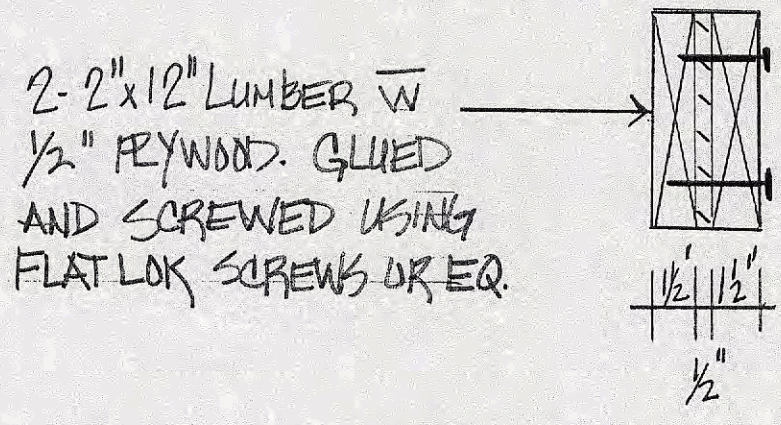 2-2"x12" LUMBER W̅
1/2" PLYWOOD. GLUED
AND SCREWED USING
FLAT LOK SCREWS OR EQ.
1 1/2" 1 1/2"
1/2"